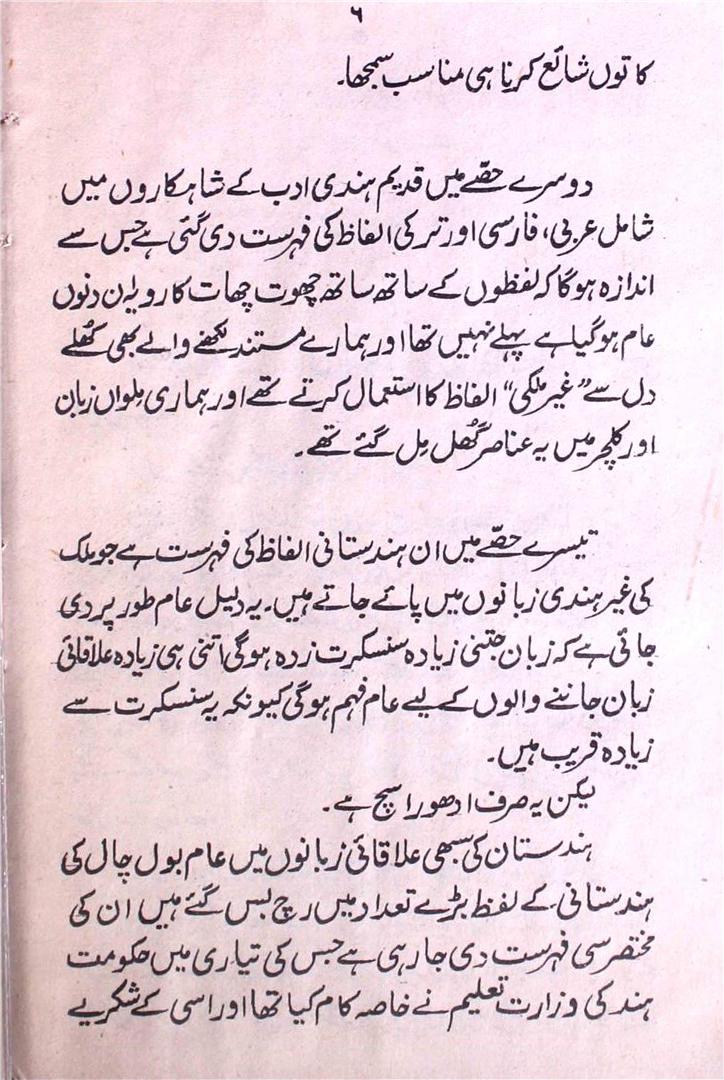 ۶
کا توں شائع کرنا ہی مناسب سمجھا۔
دوسرے حصّے میں قدیم ہندی ادب کے شاہکاروں میں
شامل عربی، فارسی اور ترکی الفاظ کی فہرست دی گئی ہے جس سے
اندازہ ہوگا کہ لفظوں کے ساتھ ساتھ چھوت چھات کا رویہ ان دنوں
عام ہوگیا ہے پہلے نہیں تھا اور ہمارے مستند لکھنے والے بھی کھُلے
دل سے "غیر ملکی" الفاظ کا استعمال کرتے تھے اور ہماری مِلواں زبان
اور کلچر میں یہ عناصر گھُل مِل گئے تھے۔
تیسرے حصّے میں ان ہندستانی الفاظ کی فہرست ہے جو ملک
کی غیر ہندی زبانوں میں پائے جاتے ہیں۔ یہ دلیل عام طور پر دی
جاتی ہے کہ زبان جتنی زیادہ سنسکرت زدہ ہوگی اتنی ہی زیادہ علاقائی
زبان جاننے والوں کے لیے عام فہم ہوگی کیونکہ یہ سنسکرت سے
زیادہ قریب ہیں۔
لیکن یہ صرف ادھورا سچ ہے۔
ہندستان کی سبھی علاقائی زبانوں میں عام بول چال کی
ہندستانی کے لفظ بڑے تعداد میں رچ بس گئے ہیں ان کی
مختصر سی فہرست دی جارہی ہے جس کی تیاری میں حکومت
ہند کی وزارت تعلیم نے خاصہ کام کیا تھا اور اسی کے شکریے